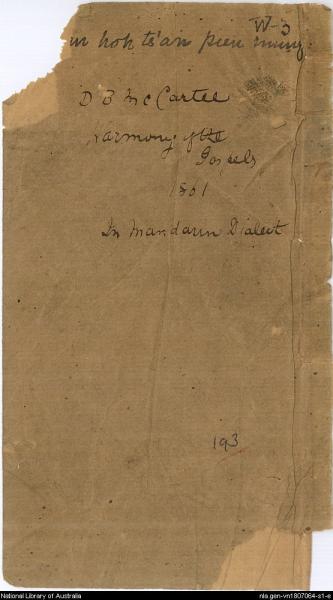 W-3
hoh ts'an pien
D B McCartee
armony of the
Gospels
1861
In Mandarin Dialect
193
National Library of Australia
nla.gen-vn1807064-s1-e